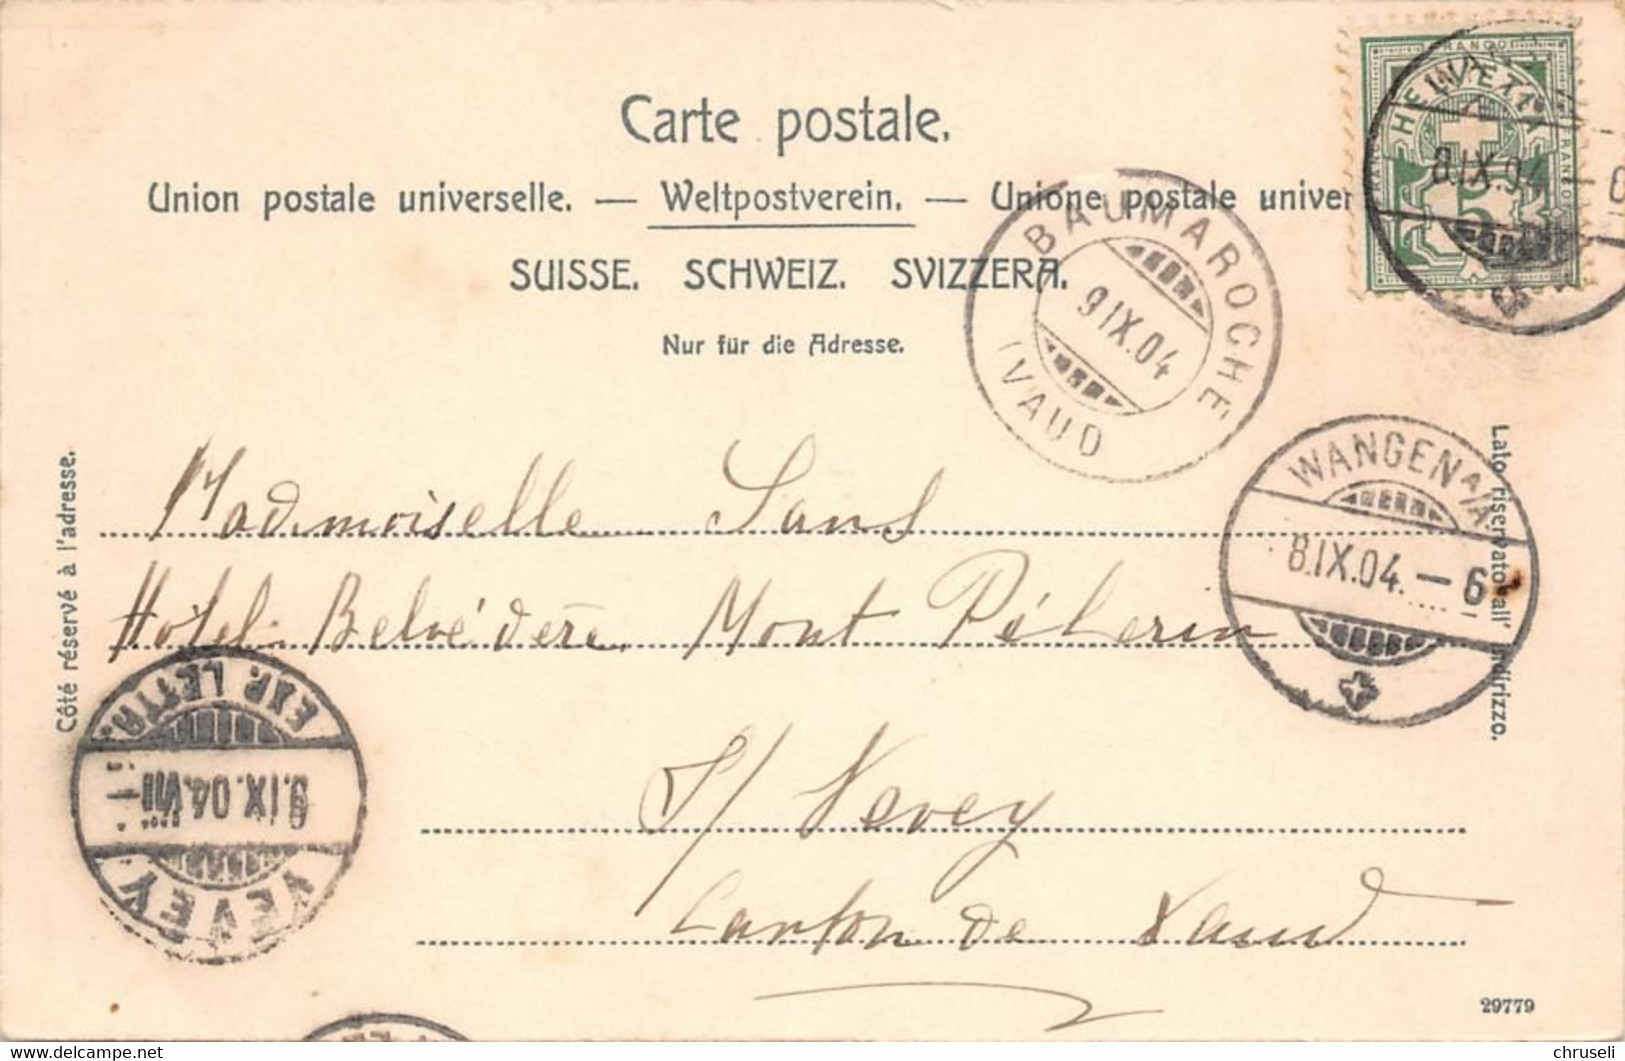 Carte postale.
Union postale universelle. — Weltpostverein. — Unione postale univer
SUISSE. SCHWEIZ. SVIZZERA.
Nur für die Adresse.
FRANCO
8.IX.04
BAUMAROCHE
9 IX.04
(VAUD
WANGEN A/A
8.IX.04.–6
Côté réservé à l'adresse.
Lato riservato all' indirizzo.
Mademoiselle Sans
Hôtel Belvédère Mont Pélerin
S/ Vevey
Canton de Vaud
EXP. LETTR.
9.IX.04.VII–
VEVEY
29779
www.delcampe.net
chruseli